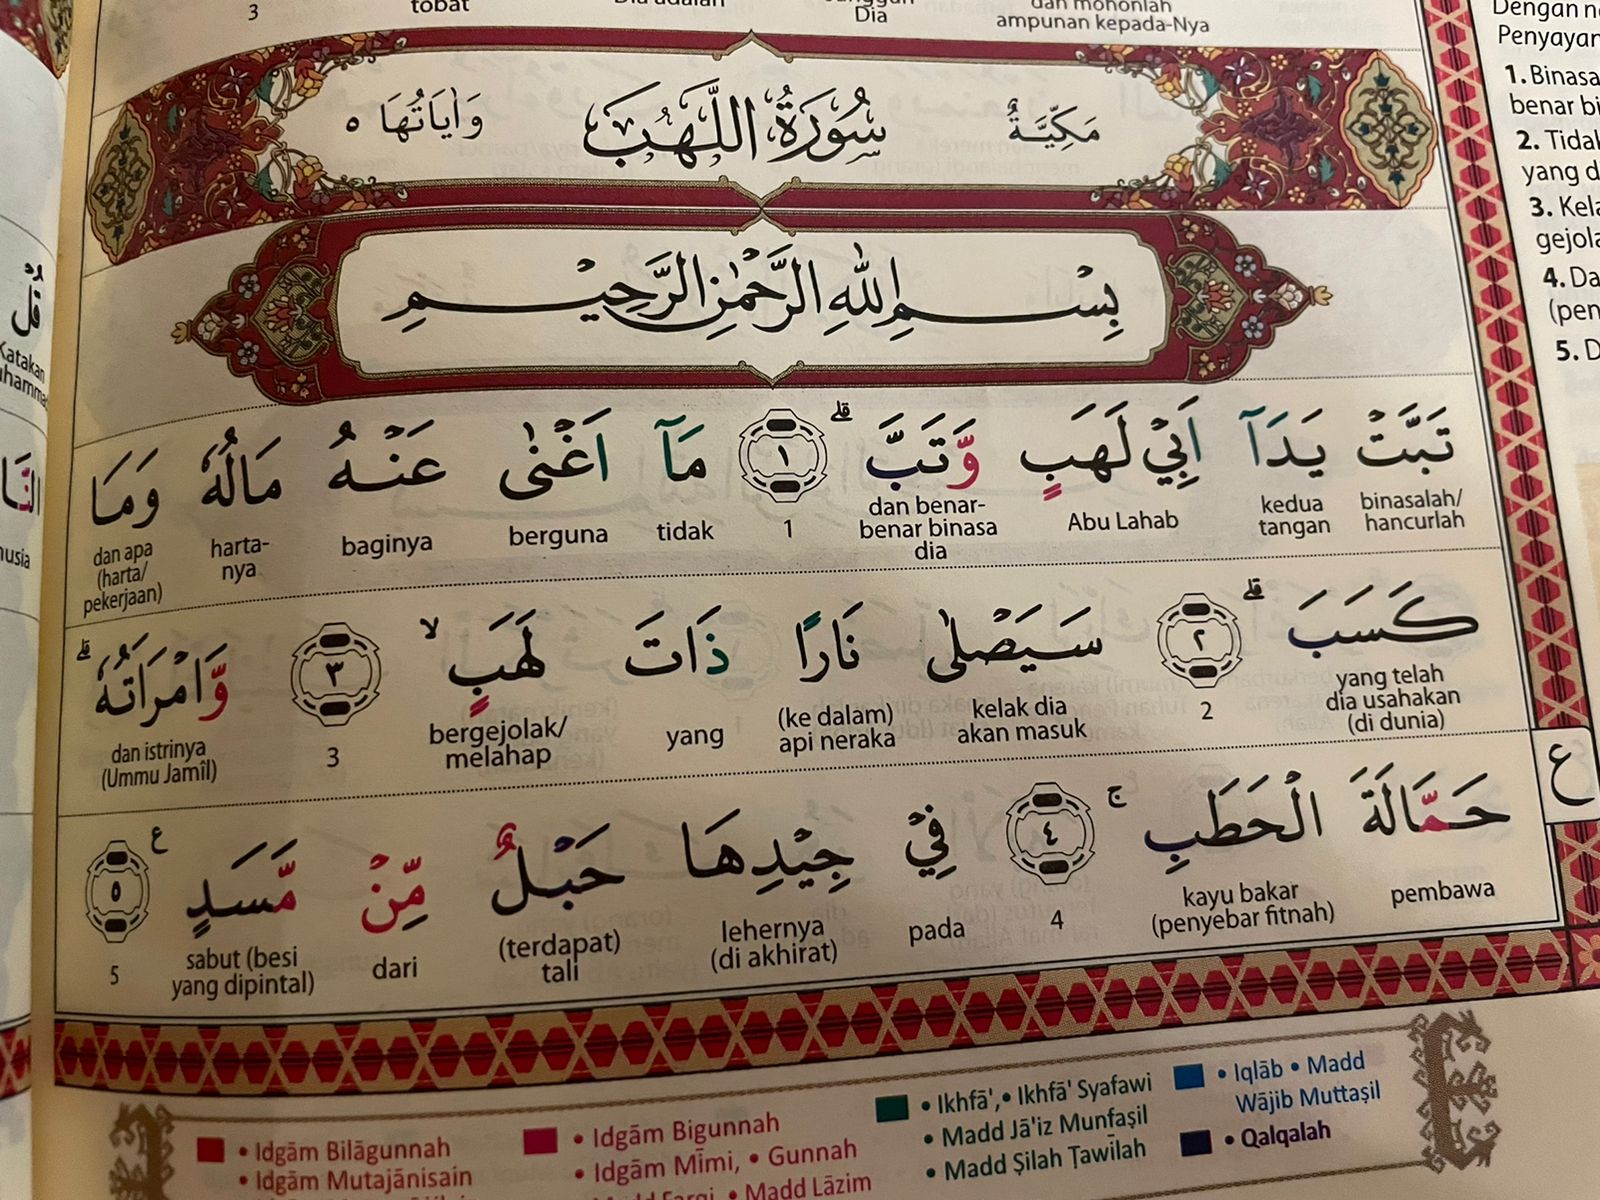 3
tobat
Dia
dan mohonlah
ampunan kepada-Nya
مَكِّيَّةٌ سُوْرَةُ اللَّهَبِ وَاٰيَاتُهَا ٥
بِسْمِ اللّٰهِ الرَّحْمٰنِ الرَّحِيْمِ
تَبَّتْ يَدَآ اَبِيْ لَهَبٍ وَّتَبَّۗ ١ مَآ اَغْنٰى عَنْهُ مَالُهٗ وَمَا
binasalah/ hancurlah
kedua tangan
Abu Lahab
dan benar-benar binasa dia
1
tidak
berguna
baginya
harta-nya
dan apa (harta/ pekerjaan)
كَسَبَۗ ٢ سَيَصْلٰى نَارًا ذَاتَ لَهَبٍۙ ٣ وَّامْرَاَتُهٗۗ
yang telah dia usahakan (di dunia)
2
kelak dia akan masuk
(ke dalam) api neraka
yang
bergejolak/ melahap
3
dan istrinya (Ummu Jamîl)
حَمَّالَةَ الْحَطَبِۚ ٤ فِيْ جِيْدِهَا حَبْلٌ مِّنْ مَّسَدٍ ࣖ ٥
pembawa
kayu bakar (penyebar fitnah)
4
pada
lehernya (di akhirat)
(terdapat) tali
dari
sabut (besi yang dipintal)
5
ع
Penyayan
1. Binasa
benar bi
2. Tidak
yang d
3. Kela
gejola
4. Da
(pen
5. D
قُلْ
Katakan
• Idgām Bilāgunnah
• Idgām Mutajānisain
• Idgām Bigunnah
• Idgām Mīmi, • Gunnah
• Madd Lāzim
• Ikhfā', • Ikhfā' Syafawi
• Madd Jā'iz Munfaṣil
• Madd Ṣilah Ṭawīlah
• Iqlāb • Madd
Wājib Muttaṣil
• Qalqalah